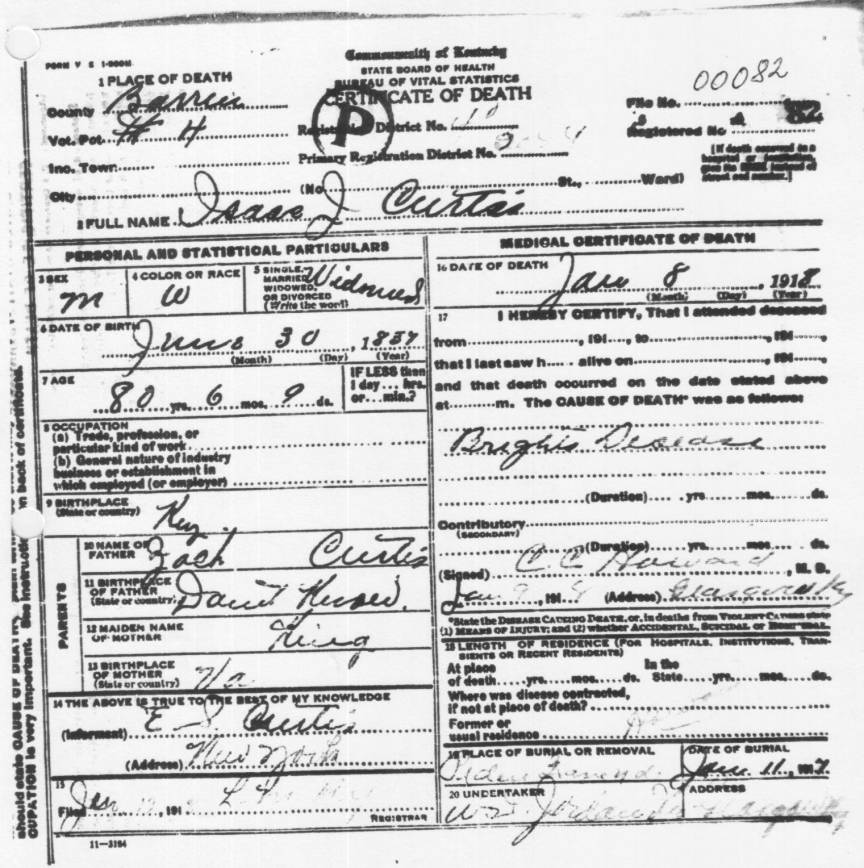 FORM V S 1-000M
Commonwealth of Kentucky
STATE BOARD OF HEALTH
BUREAU OF VITAL STATISTICS
CERTIFICATE OF DEATH
1 PLACE OF DEATH
County Barren
Vot. Pct # 4
Inc. Town
City
Registration District No.
Primary Registration District No.
P
File No. 00082
Registered No 82
[If death occurred in a
hospital or institution,
give its NAME instead of
street and number.]
(No St., Ward)
2 FULL NAME Isaac J Curtis
PERSONAL AND STATISTICAL PARTICULARS
3 SEX
m
4 COLOR OR RACE
W
5 SINGLE,
MARRIED
WIDOWED,
OR DIVORCED
(Write the word)
Widowed
6 DATE OF BIRTH
June 30, 1837
(Month) (Day) (Year)
7 AGE
80 yrs. 6 mos. 9 ds.
IF LESS than
1 day... hrs.
or... min.?
8 OCCUPATION
(a) Trade, profession, or
particular kind of work
(b) General nature of industry
business or establishment in
which employed (or employer)
9 BIRTHPLACE
(State or country)
Ky.
PARENTS
10 NAME OF
FATHER
Zach Curtis
11 BIRTHPLACE
OF FATHER
(State or country)
Don't Know.
12 MAIDEN NAME
OF MOTHER
King
13 BIRTHPLACE
OF MOTHER
(State or country)
Va
14 THE ABOVE IS TRUE TO THE BEST OF MY KNOWLEDGE
(Informant) E S Curtis
(Address) New York
15
Filed Jan 191
REGISTRAR
11-3184
MEDICAL CERTIFICATE OF DEATH
16 DATE OF DEATH
Jan 8, 1918
(Month) (Day) (Year)
17 I HEREBY CERTIFY, That I attended deceased
from , 191 , to , 191 ,
that I last saw h alive on , 191 ,
and that death occurred on the date stated above
at m. The CAUSE OF DEATH* was as follows:
Brights Disease
(Duration) yrs. mos. ds.
Contributory
(SECONDARY)
(Duration) yrs. mos. ds.
(Signed) C. C. Howard, M. D.
Jan 9, 191 8 (Address) Glasgow Ky
*State the DISEASE CAUSING DEATH, or, in deaths from VIOLENT CAUSES state
(1) MEANS OF INJURY; and (2) whether ACCIDENTAL, SUICIDAL or HOMICIDAL.
18 LENGTH OF RESIDENCE (FOR HOSPITALS, INSTITUTIONS, TRAN-
SIENTS OR RECENT RESIDENTS)
At place In the
of death yrs. mos. ds. State yrs. mos. ds.
Where was disease contracted,
if not at place of death?
Former or
usual residence
19 PLACE OF BURIAL OR REMOVAL
DATE OF BURIAL
Jan 11, 191
20 UNDERTAKER
ADDRESS
should state CAUSE OF DEATH,
CUPATION is very important. See instructions on back of certificate.